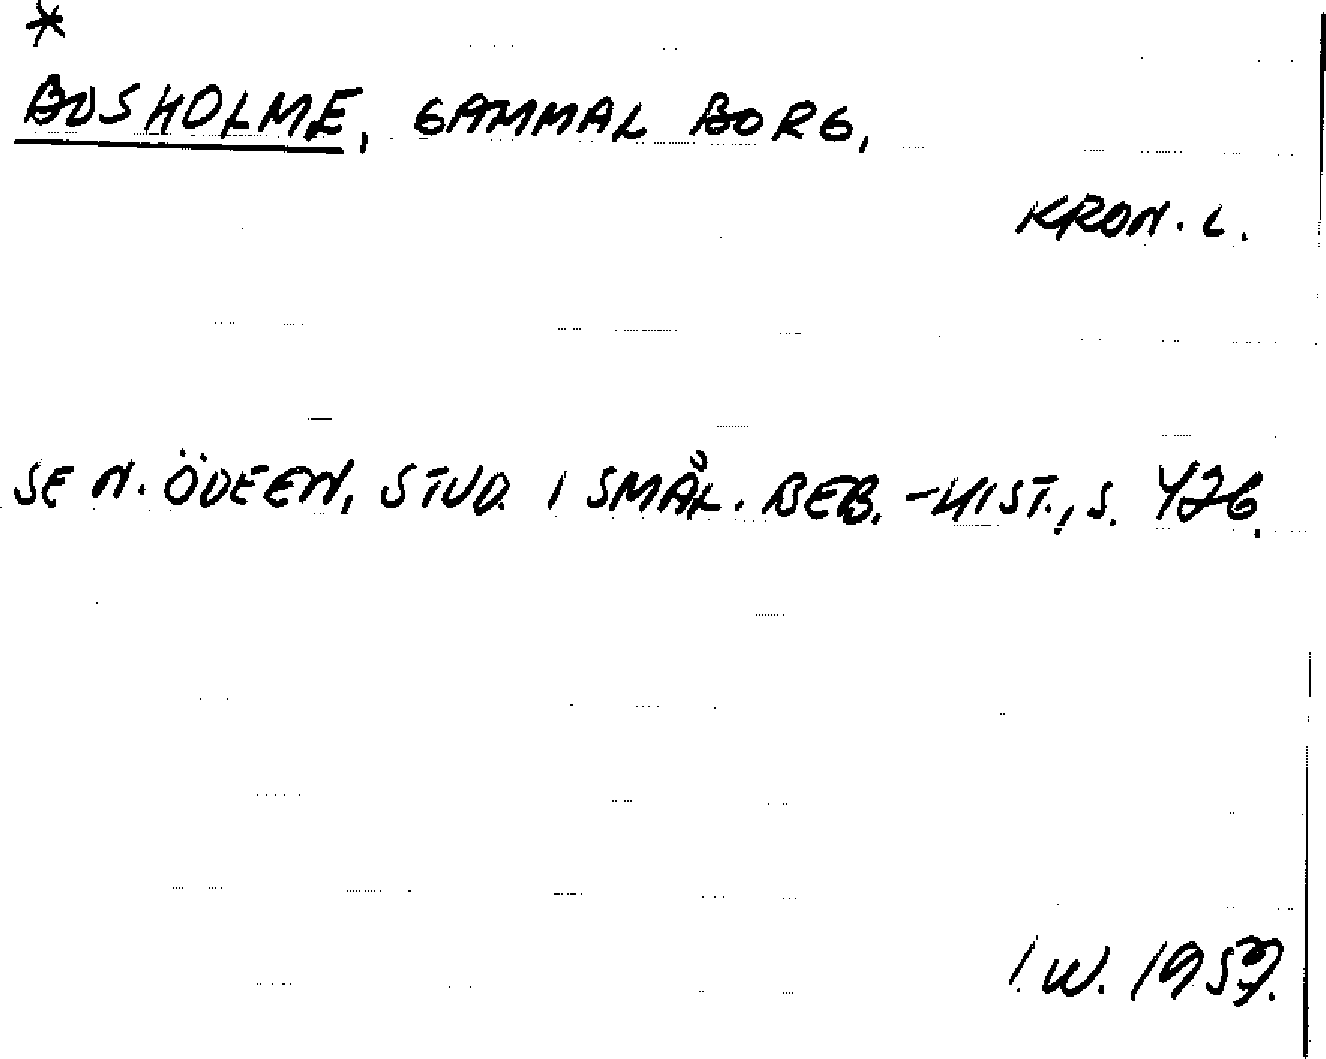 *
BOSHOLME, GAMMAL BORG,
KRON. L.
SE N. ÖDEEN, STUD. I SMÅL. BEB.-HIST., S. 426.
I. W. 1959.